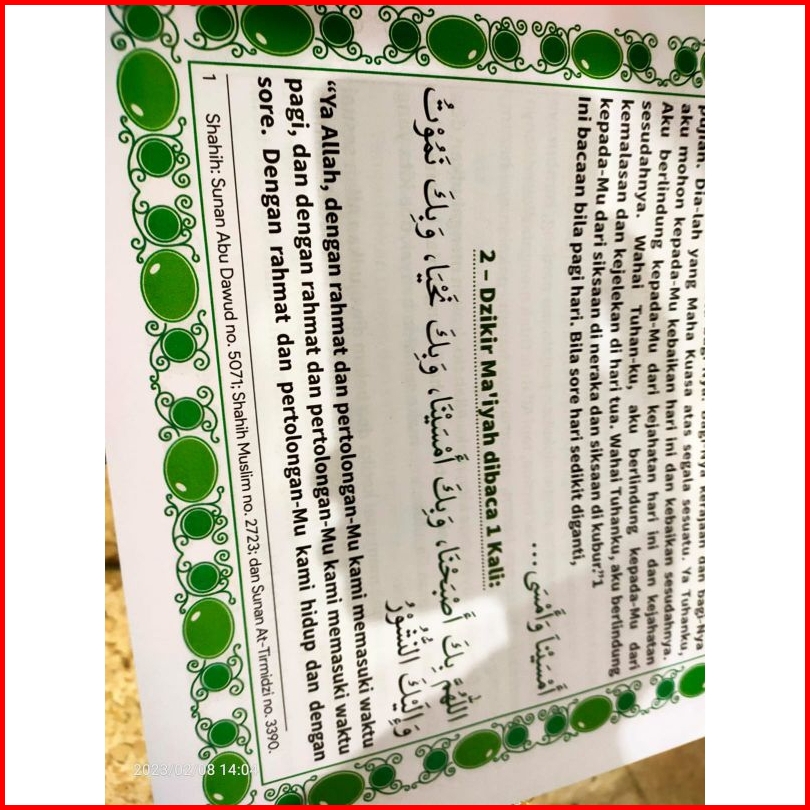 pujian. Dia-lah yang Maha Kuasa atas segala sesuatu. Ya Tuhanku,
aku mohon kepada-Mu kebaikan hari ini dan kebaikan sesudahnya.
Aku berlindung kepada-Mu dari kejahatan hari ini dan kejahatan
sesudahnya. Wahai Tuhan-ku, aku berlindung kepada-Mu dari
kemalasan dan kejelekan di hari tua. Wahai Tuhanku, aku berlindung
kepada-Mu dari siksaan di neraka dan siksaan di kubur."1
Ini bacaan bila pagi hari. Bila sore hari sedikit diganti,
أَمْسَيْنَا وَأَمْسَى...
2 – Dzikir Ma'iyah dibaca 1 Kali:
اللَّهُمَّ بِكَ أَصْبَحْنَا، وَبِكَ أَمْسَيْنَا، وَبِكَ نَحْيَا، وَبِكَ نَمُوْتُ
وَإِلَيْكَ النُّشُوْرُ
“Ya Allah, dengan rahmat dan pertolongan-Mu kami memasuki waktu
pagi, dan dengan rahmat dan pertolongan-Mu kami memasuki waktu
sore. Dengan rahmat dan pertolongan-Mu kami hidup dan dengan
1 Shahih: Sunan Abu Dawud no. 5071; Shahih Muslim no. 2723; dan Sunan At-Tirmidzi no. 3390.
2023/02/08 14:04